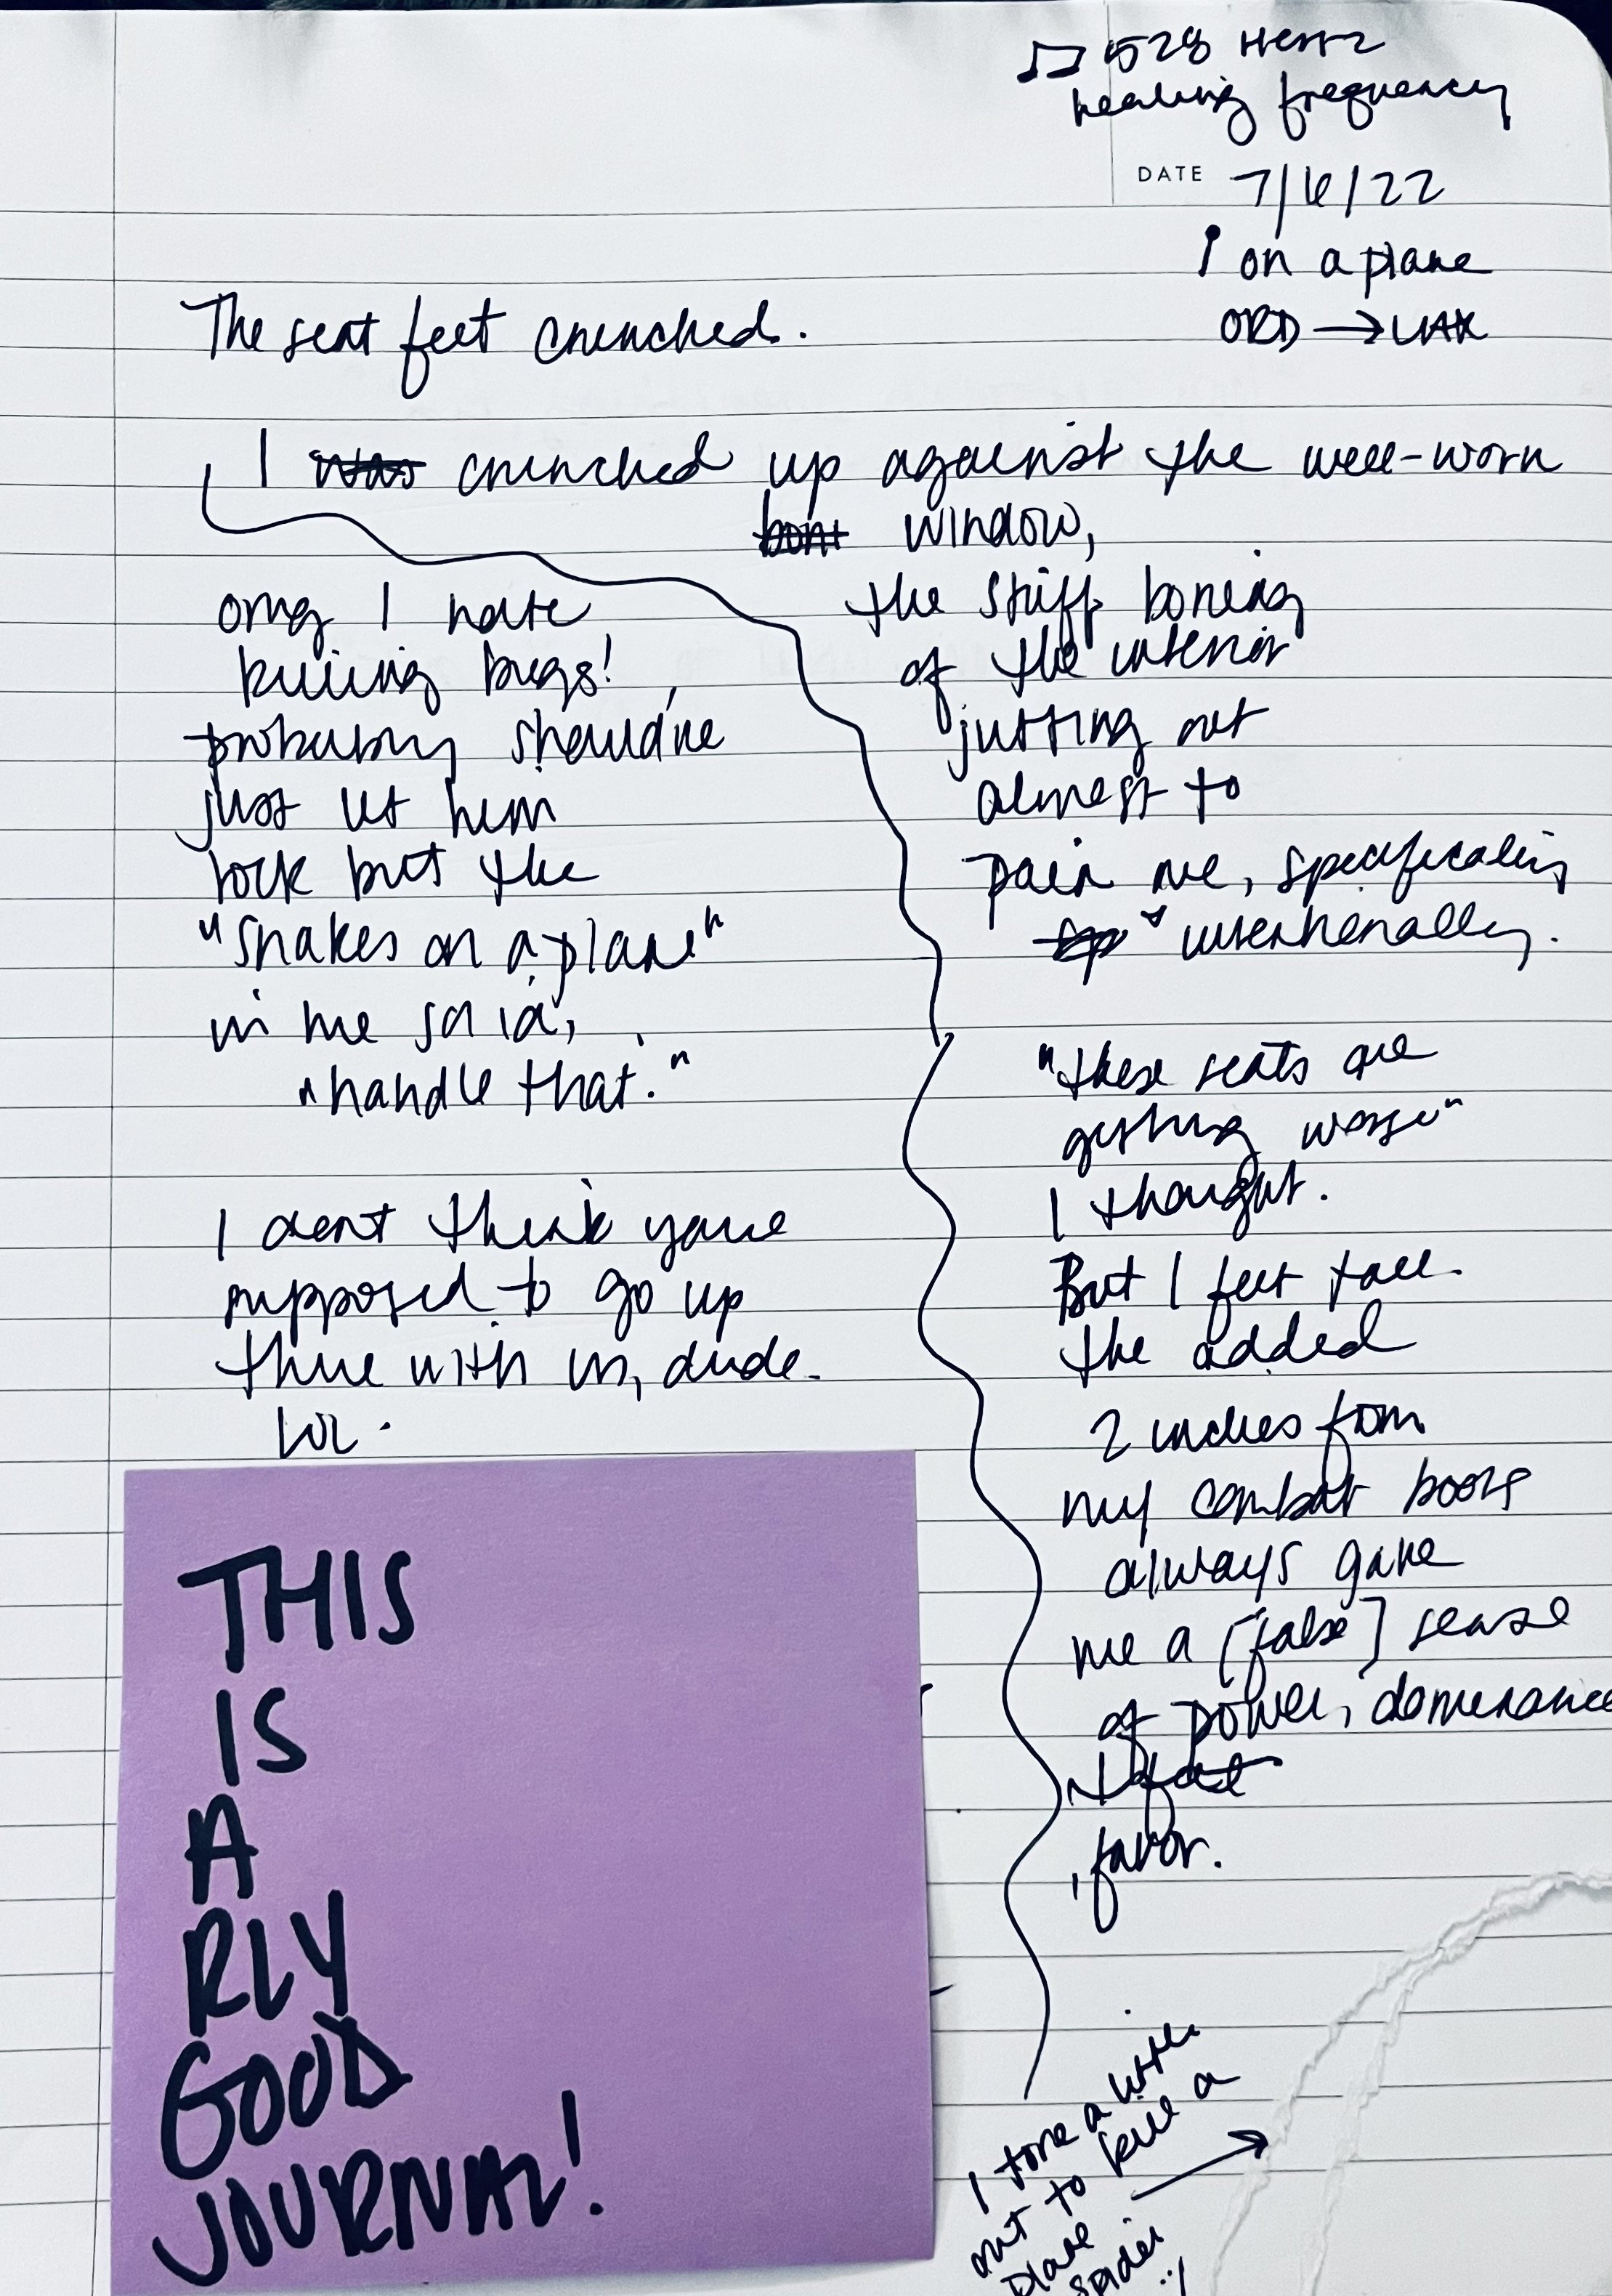 ♫ 528 Hertz
healing frequency
DATE 7/6/22
on a plane
ORD → LAX
The seat felt crunched.
I was crunched up against the well-worn
bont window,
the stiff boning
of the interior
jutting out
almost to
pain me, specifically
sp intentionally.
"these seats are
getting worse"
I thought.
But I felt tall.
the added
2 inches from
my combat boots
always gave
me a [false] sense
of power, dominance
, favor.
omg I hate
killing bugs!
probably should've
just let him
rock but the
"snakes on a plane"
in me said,
"handle that."
I don't think you're
supposed to go up
there with us, dude.
lol.
THIS
IS
A
RLY
GOOD
JOURNAL!
I tore a little
out to kill a
plane
spider
:/
→